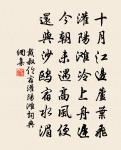 十月江邊蘆葉飛
灌陽灘冷上舟遲
今朝未遇高風便
還與沙鷗宿水湄
戴叔倫宿灌陽灘詞典
網集